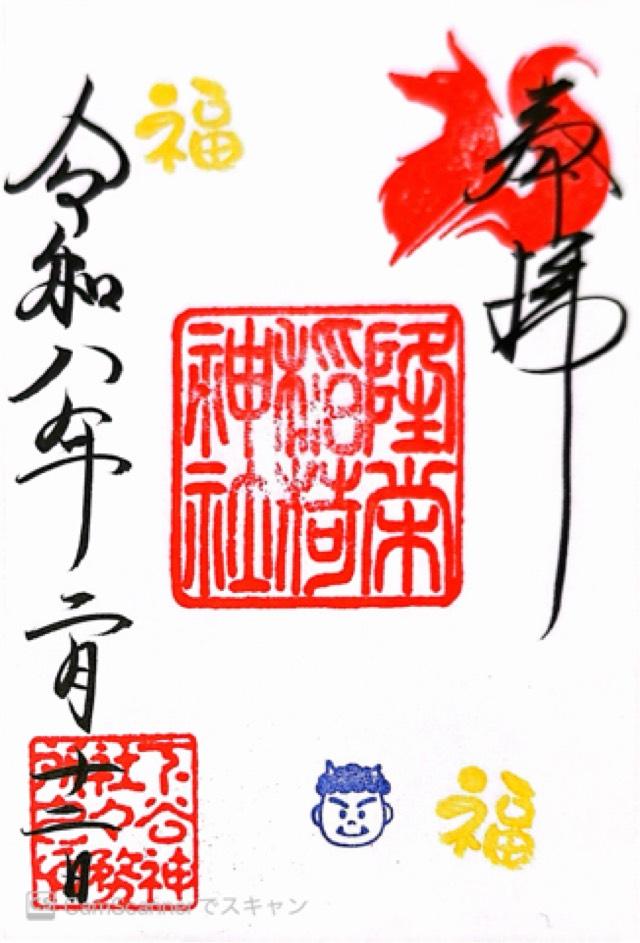 奉拝
隆栄
稲荷
神社
福
令和八年二月十三日
下谷神
社々務
福
CamScannerでスキャン